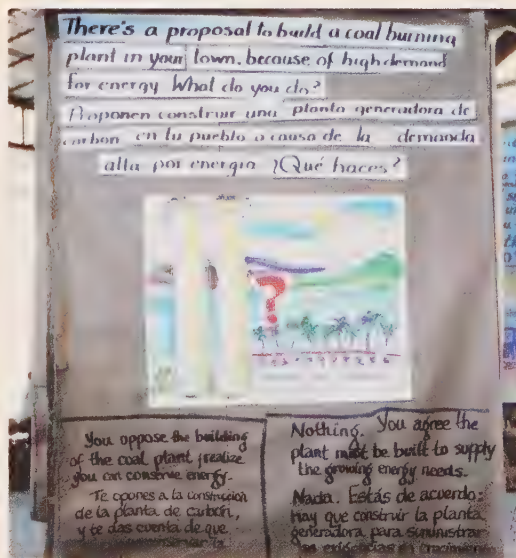 There's a proposal to build a coal burning
plant in your town, because of high demand
for energy What do you do?
Proponen construir una planta generadora de
carbon en tu pueblo a causa de la demanda
alta por energia ¿Qué haces?
?
You oppose the building
of the coal plant, realize
you can conserve energy.
Te opones a la construcción
de la planta de carbón,
y te das cuenta de que
Nothing. You agree the
plant must be built to supply
the growing energy needs.
Nada. Estás de acuerdo:
hay que construir la planta
generadora para suministrar
las exigencias en crecimiento